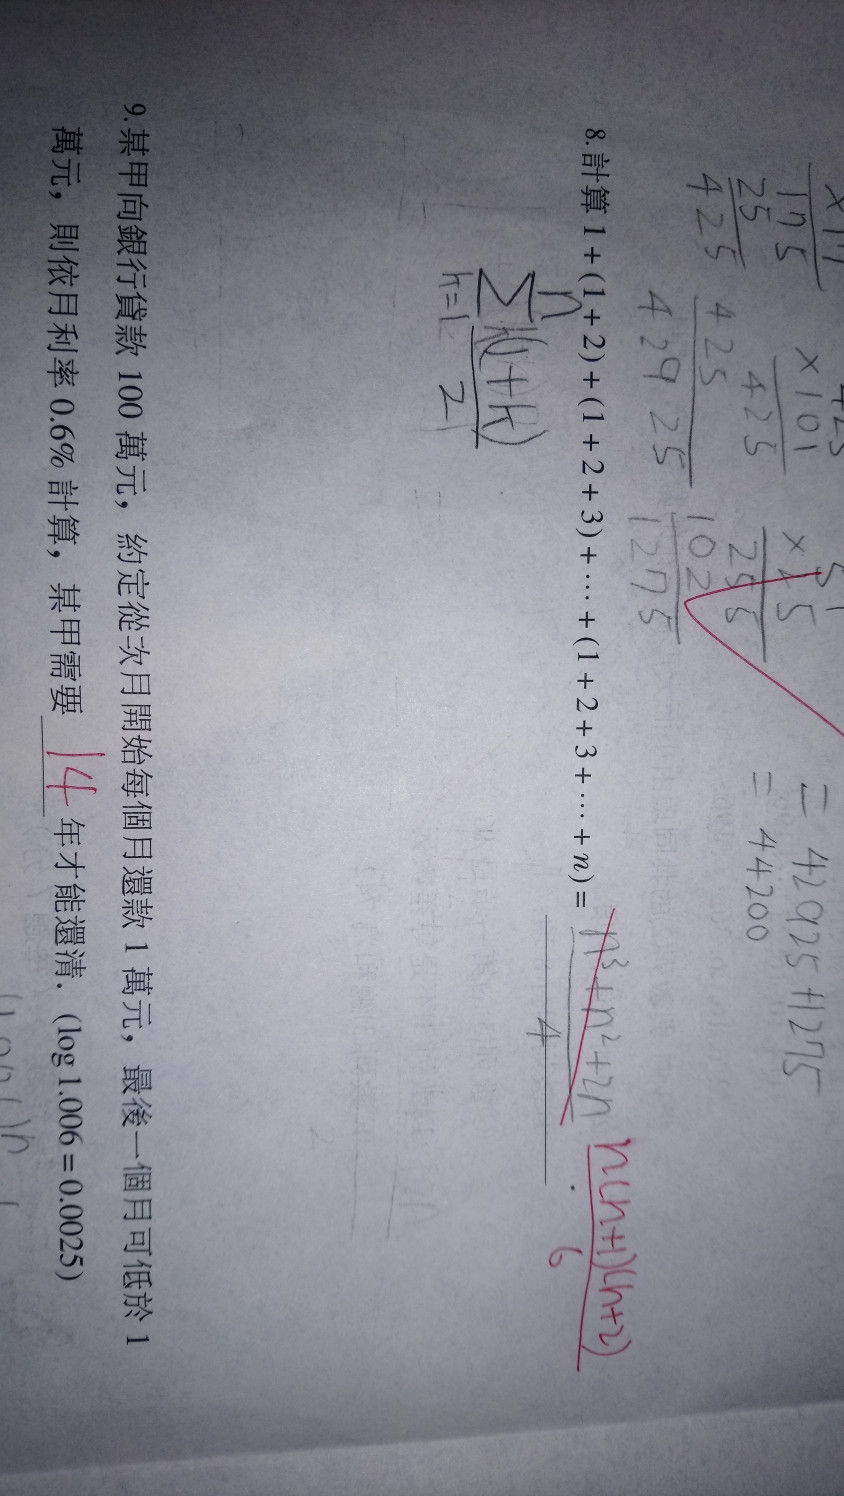 ×17
175
25
425
425
×101
425
425
42925
51
×25
255
102
1275
= 42925+1275
= 44200
8. 計算 1 + (1 + 2) + (1 + 2 + 3) + ⋯ + (1 + 2 + 3 + ⋯ + n) = n³+n²+2n / 4 . n(n+1)(n+2) / 6
n
Σ k(1+k) / 2
k=1
9. 某甲向銀行貸款 100 萬元，約定從次月開始每個月還款 1 萬元，最後一個月可低於 1
萬元，則依月利率 0.6% 計算，某甲需要 14 年才能還清．(log 1.006 = 0.0025)